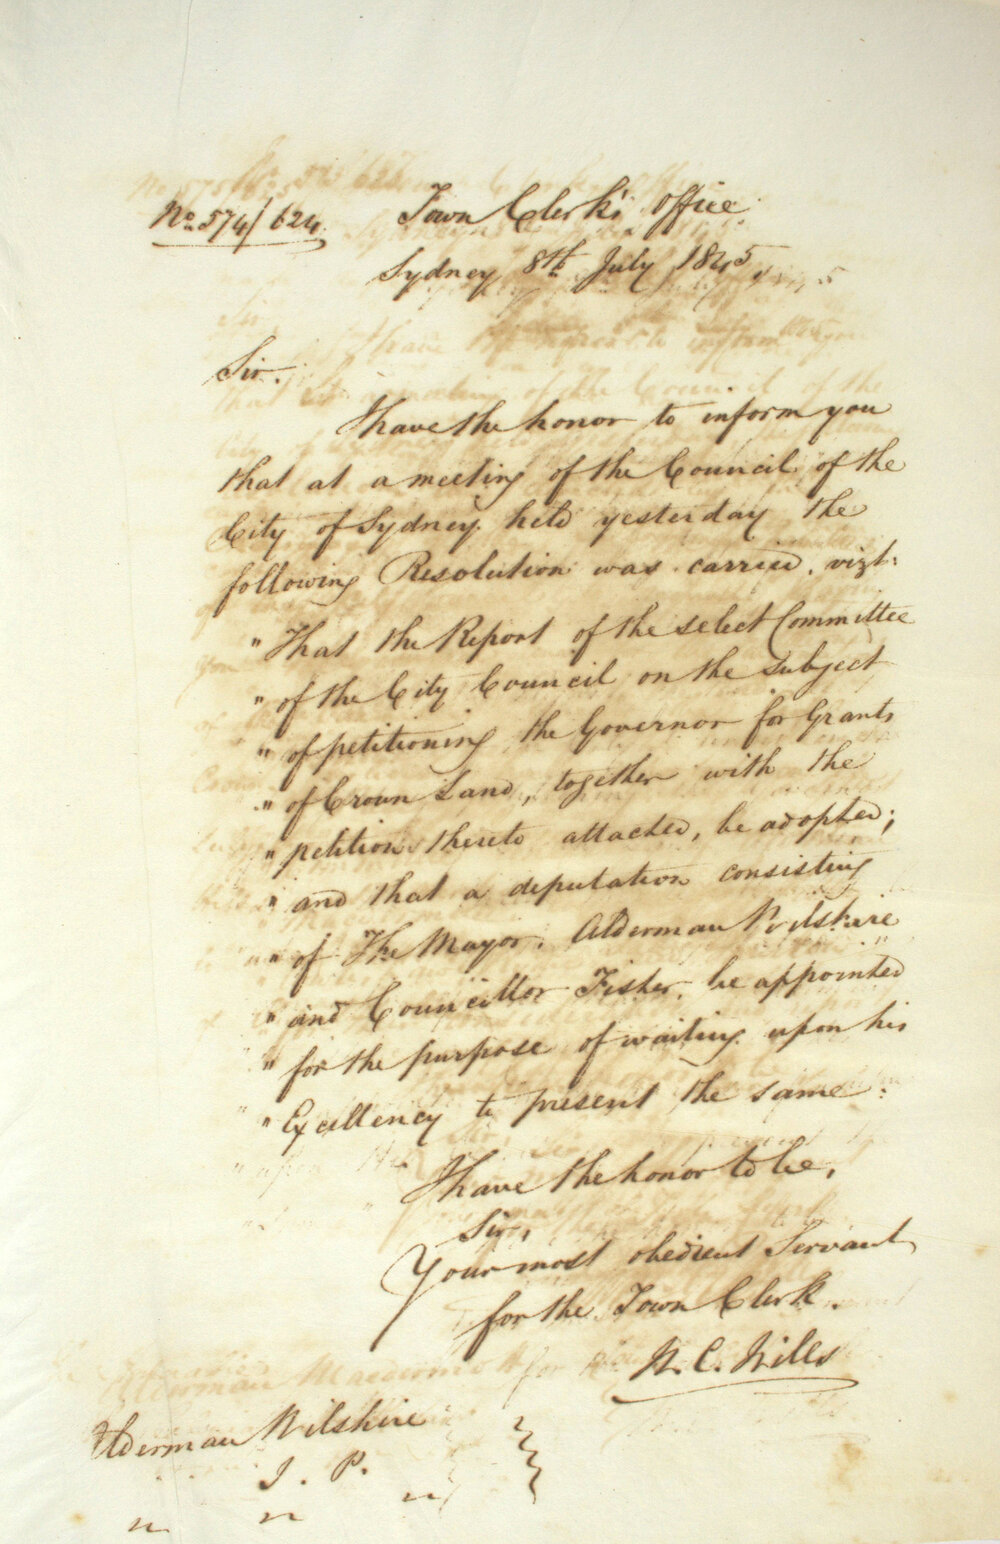 No. 574/624.
Town Clerk's Office
Sydney 8th July 1845.
Sir.
I have the honor to inform you
that at a meeting of the Council of the
City of Sydney held yesterday the
following Resolution was carried, vizt:
"That the Report of the select Committee
" of the City Council on the subject
" of petitioning the Governor for Grants
" of Crown Land, together with the
" petition thereto attached, be adopted;
" and that a deputation consisting
" of The Mayor, Alderman Wilshire
" and Councillor Fisher, be appointed
" for the purpose of waiting upon his
" Excellency to present the same.
I have the honor to be,
Sir,
Your most obedient Servant
for the Town Clerk.
W. C. Wills
Alderman Wilshire
J. P.
" " "